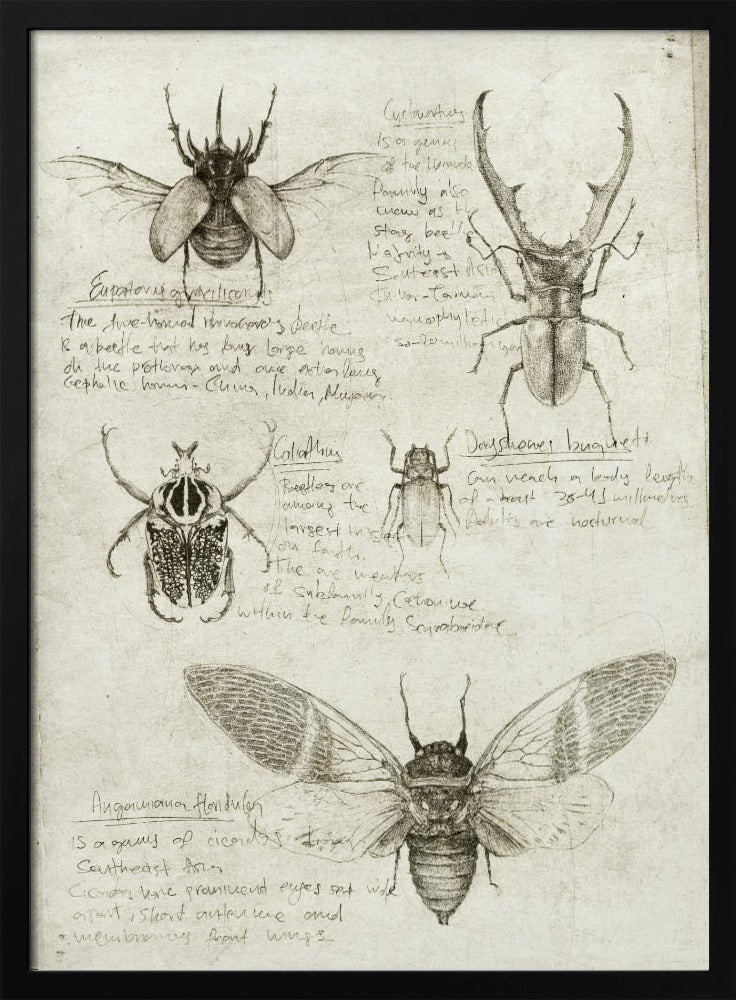 Eupatorus gracilicornis
The five-horned rhinoceros beetle
is a beetle that has four large horns
on the and one extra long
cephalic horn - China, India, Myanmar
Cyclommatus
is a genus
of the
family also
know as
stag beetle
Majority
Southeast Asia
Goliathus
Beetles are
among the
largest
on Earth.
The are members
of subfamily Cetoniinae
within the family Scarabaeidae
Dorysthenes bugueti
Can reach a body length
of about millimetres
Adults are nocturnal
Angamiana floridula
is a genus of cicadas from
Southeast Asia
Cicadas have prominent eyes set wide
apart, short antennae and
membranous front wings